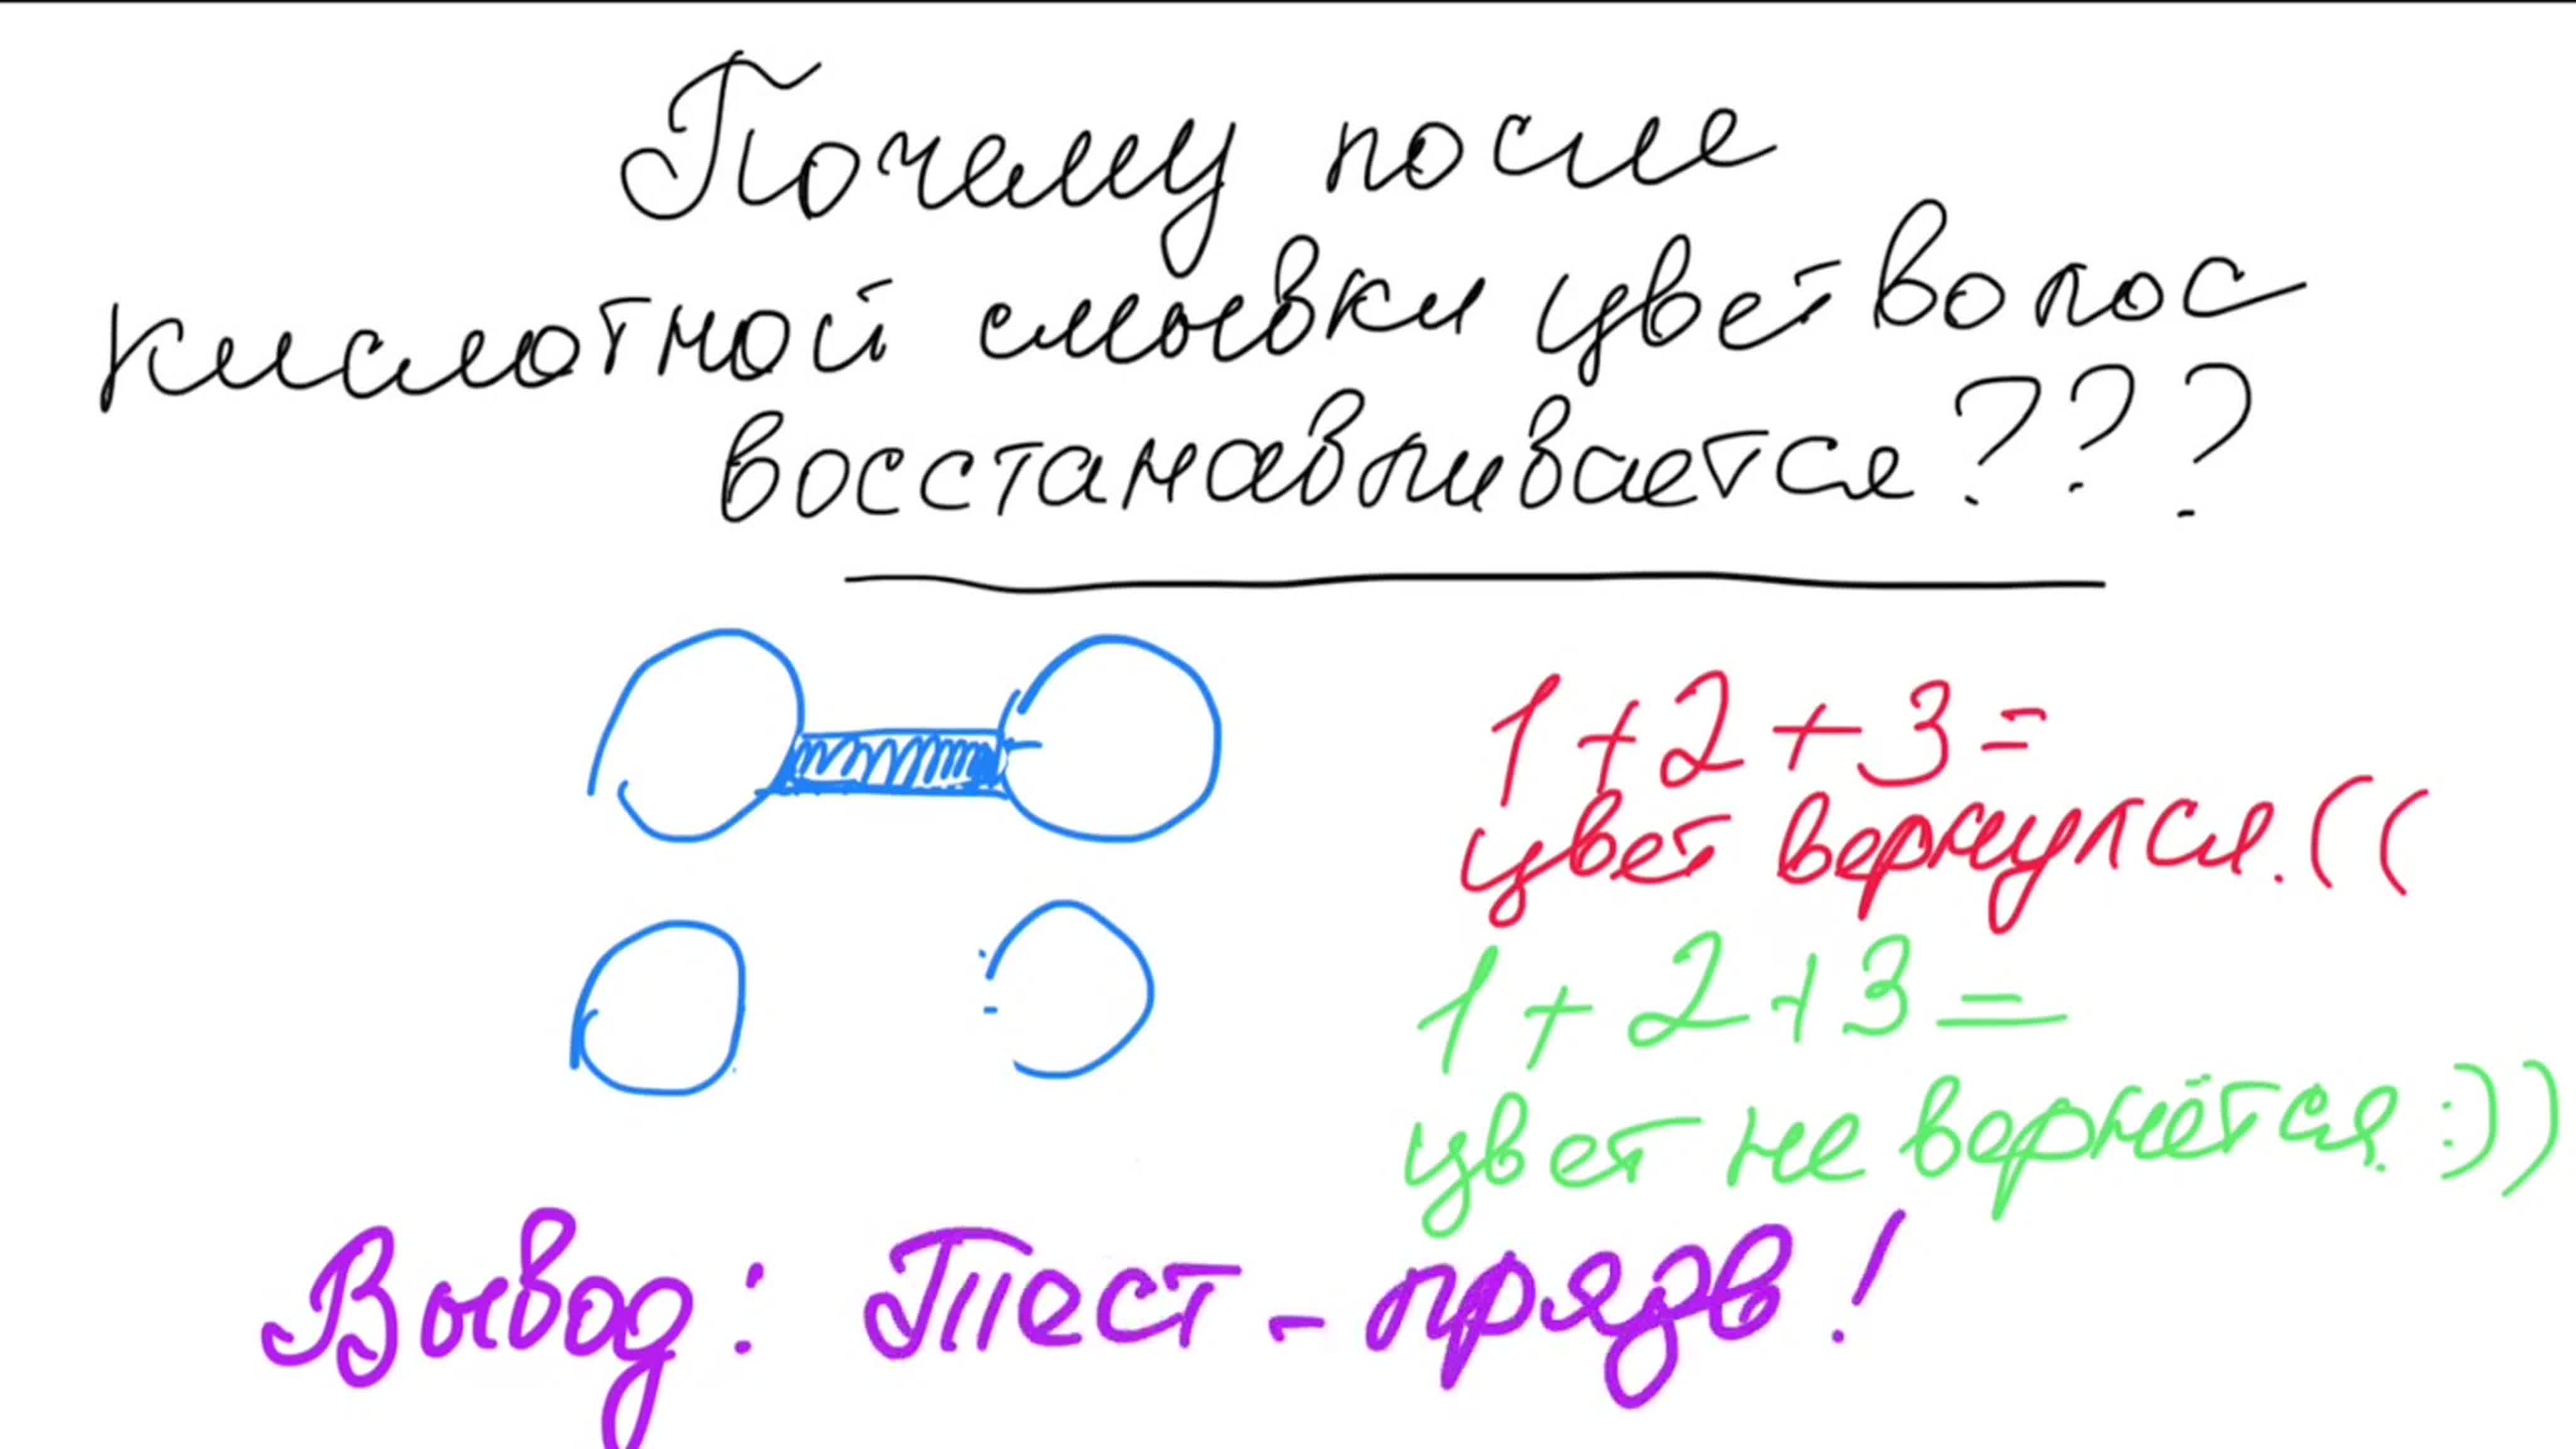 Почему после
кислотной смывки цвет волос
восстанавливается???
1+2+3=
цвет вернулся.((
1+2+3=
цвет не вернётся:))
Вывод: Тест-прядь!